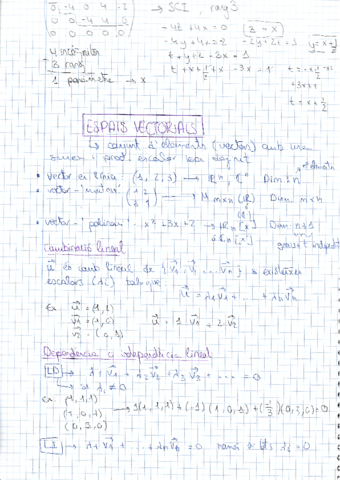 0 -4 0 4 -2
0 0 -4 4 0
0 0 0 0 0
→ SCI rang 3
-4z + 4x = 0
z = x
t + y + z + 3x = 1
4 incògnites
3 rang
1 paràmetre → x
t = x + 1/2
ESPAIS VECTORIALS
↳ conjunt d'elements (vectors) amb una
suma i prod. escalar ben definit
• vector en línia (1, 2, 3) → ℝⁿ, ℂⁿ Dim: n
• vector "matriu" (1 2
3 1) → M m×n (ℝ) Dim: m×n
• vector "polinomi" x² + 3x + 2 → ℝn [x] Dim: n+1
grau + independent
Combinació lineal
u és comb. lineal de {v1, v2, ... vn} si existeixen
escalars (λi) tal que:
u = λ1v1 + ... + λnvn
Ex: u = (1, 2)
v1 = (1, 0) u = 1 v1 + 2 v2
v2 = (0, 1)
Dependència i independència lineal
LD → λ1v1 + λ2v2 + λ3v3 + ... = 0
↳ λi ≠ 0
ex: (1, 1, 1)
(1, 0, 1) → 1(1, 1, 1) + (-1)(1, 0, 1) + (-1/3)(0, 3, 0) = 0
(0, 3, 0)
LI → λ1v1 + ... + λnvn = 0 només si tots λi = 0